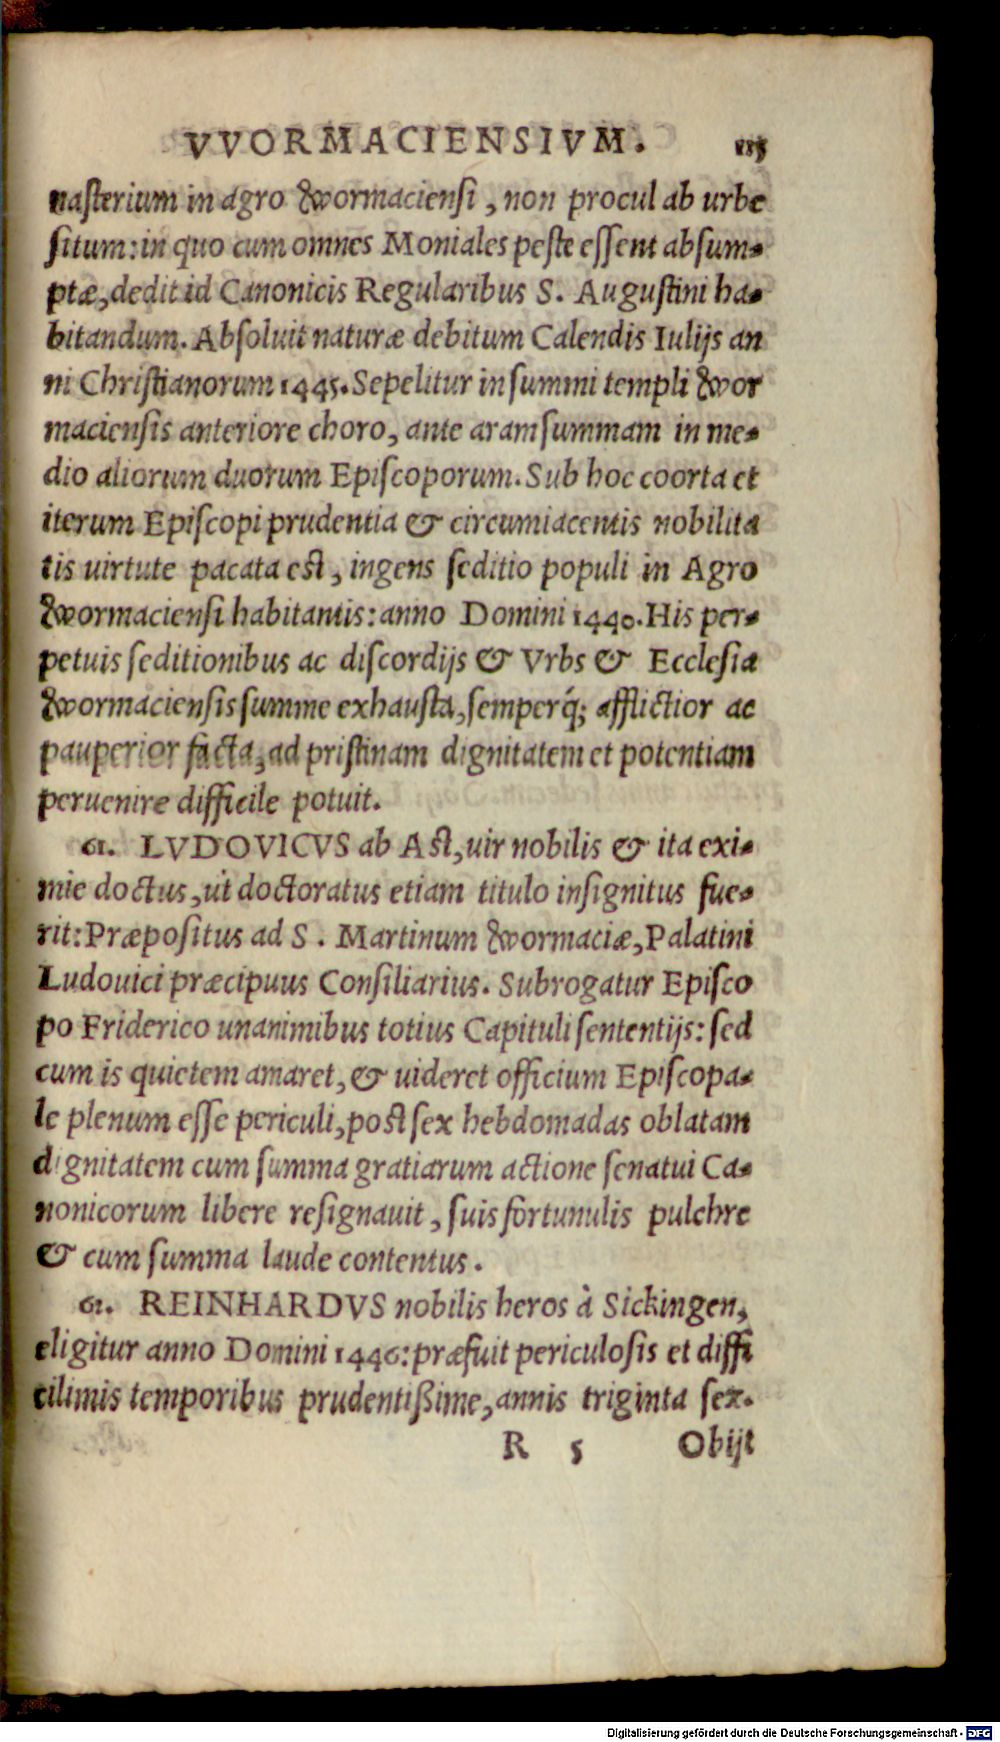 VVORMACIENSIVM.
nasterium in agro wormaciensi, non procul ab urbe
situm: in quo cum omnes Moniales peste essent absum-
ptæ, dedit id Canonicis Regularibus S. Augustini ha-
bitandum. Absoluit naturæ debitum Calendis Iulijs an
ni Christianorum 1445. Sepelitur in summi templi wor
maciensis anteriore choro, ante aram summam in me-
dio aliorum duorum Episcoporum. Sub hoc coorta et
iterum Episcopi prudentia & circumiacentis nobilita
tis uirtute pacata est, ingens seditio populi in Agro
wormaciensi habitantis: anno Domini 1440. His per-
petuis seditionibus ac discordijs & Vrbs & Ecclesia
wormaciensis summe exhausta, semperq́; afflictior ac
pauperior facta, ad pristinam dignitatem et potentiam
peruenire difficile potuit.
61. LVDOVICVS ab Ast, uir nobilis & ita exi-
mie doctus, ut doctoratus etiam titulo insignitus fue-
rit: Præpositus ad S. Martinum wormaciæ, Palatini
Ludouici præcipuus Consiliarius. Subrogatur Episco
po Friderico unanimibus totius Capituli sententijs: sed
cum is quietem amaret, & uideret officium Episcopa-
le plenum esse periculi, post sex hebdomadas oblatam
dignitatem cum summa gratiarum actione senatui Ca-
nonicorum libere resignauit, suis fortunulis pulchre
& cum summa laude contentus.
62. REINHARDVS nobilis heros à Sickingen,
eligitur anno Domini 1446: præfuit periculosis et diffi
cilimis temporibus prudentißime, annis triginta sex.
R 5 Obijt
Digitalisierung gefördert durch die Deutsche Forschungsgemeinschaft - DFG